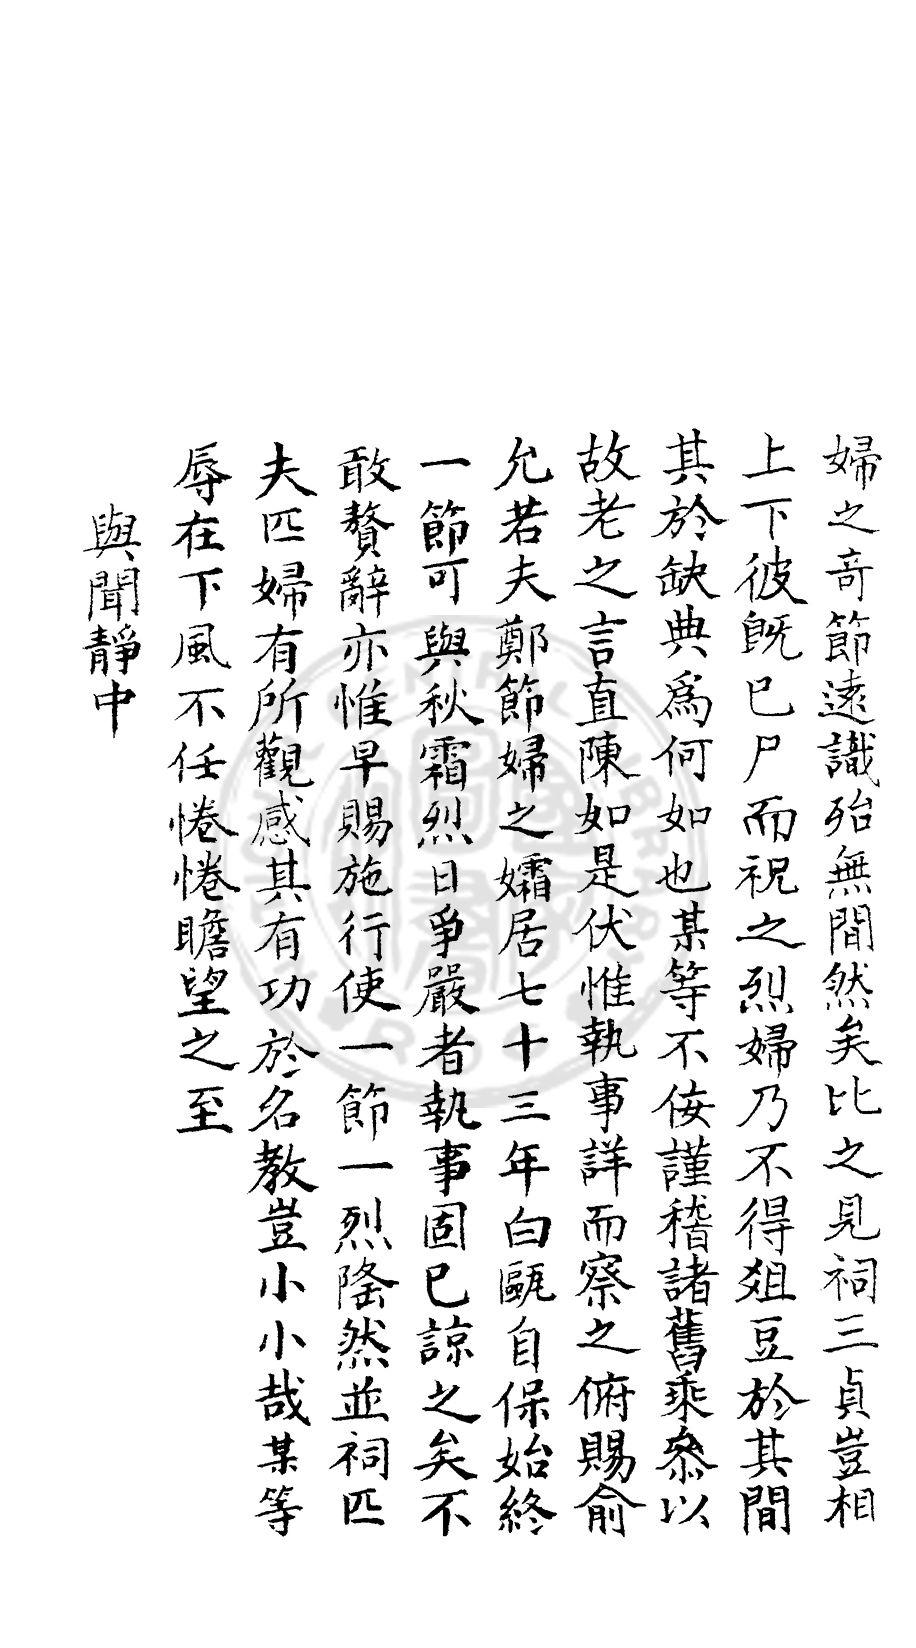 婦之奇節遠識殆無間然矣比之見祠三貞豈相
上下彼旣已尸而祝之烈婦乃不得俎豆於其間
其於缺典爲何如也某等不佞謹稽諸舊乘叅以
故老之言直陳如是伏惟執事詳而察之俯賜俞
允若夫鄭節婦之孀居七十三年白甌自保始終
一節可與秋霜烈日爭嚴者執事固已諒之矣不
敢贅辭亦惟早賜施行使一節一烈隂然並祠匹
夫匹婦有所觀感其有功於名教豈小小哉某等
辱在下風不任惓惓瞻望之至
與聞靜中